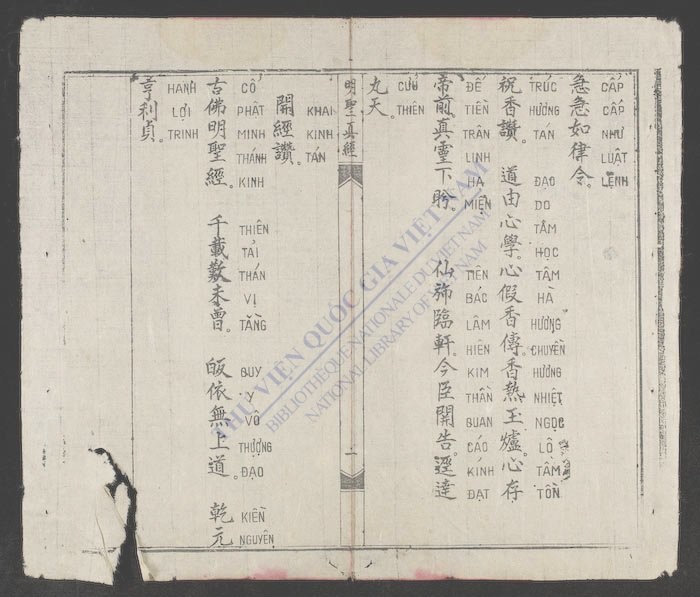 急急如律令。
CẤP CẤP NHƯ LUẬT LỆNH
祝香讚 道由心學。心假香傳。香熱玉爐。心存
TRÚC HƯƠNG TÁN ĐẠO DO TÂM HỌC TÂM HÀ HƯƠNG CHUYỀN HƯƠNG NHIỆT NGỌC LÔ TÂM TỒN
帝前。真靈下盼。 仙斾臨軒。今臣開告。逕達
ĐẾ TIỀN TRÂN LINH HẠ MIỆN TIÊN BÁC LÂM HIÊN KIM THẦN QUAN CÁO KINH ĐẠT
九天。
CỬU THIÊN
明聖真經
一
開經讚。
KHAI KINH TÁN
古佛明聖經。 千載歎未曾。 皈依無上道。 乾元
CỔ PHẬT MINH THÁNH KINH THIÊN TẢI THÁN VỊ TẰNG QUY Y VÔ THƯỢNG ĐẠO KIỀN NGUYÊN
亨利貞。
HANH LỢI TRINH
THƯ VIỆN QUỐC GIA VIỆT NAM
BIBLIOTHÈQUE NATIONALE DU VIETNAM
NATIONAL LIBRARY OF VIETNAM